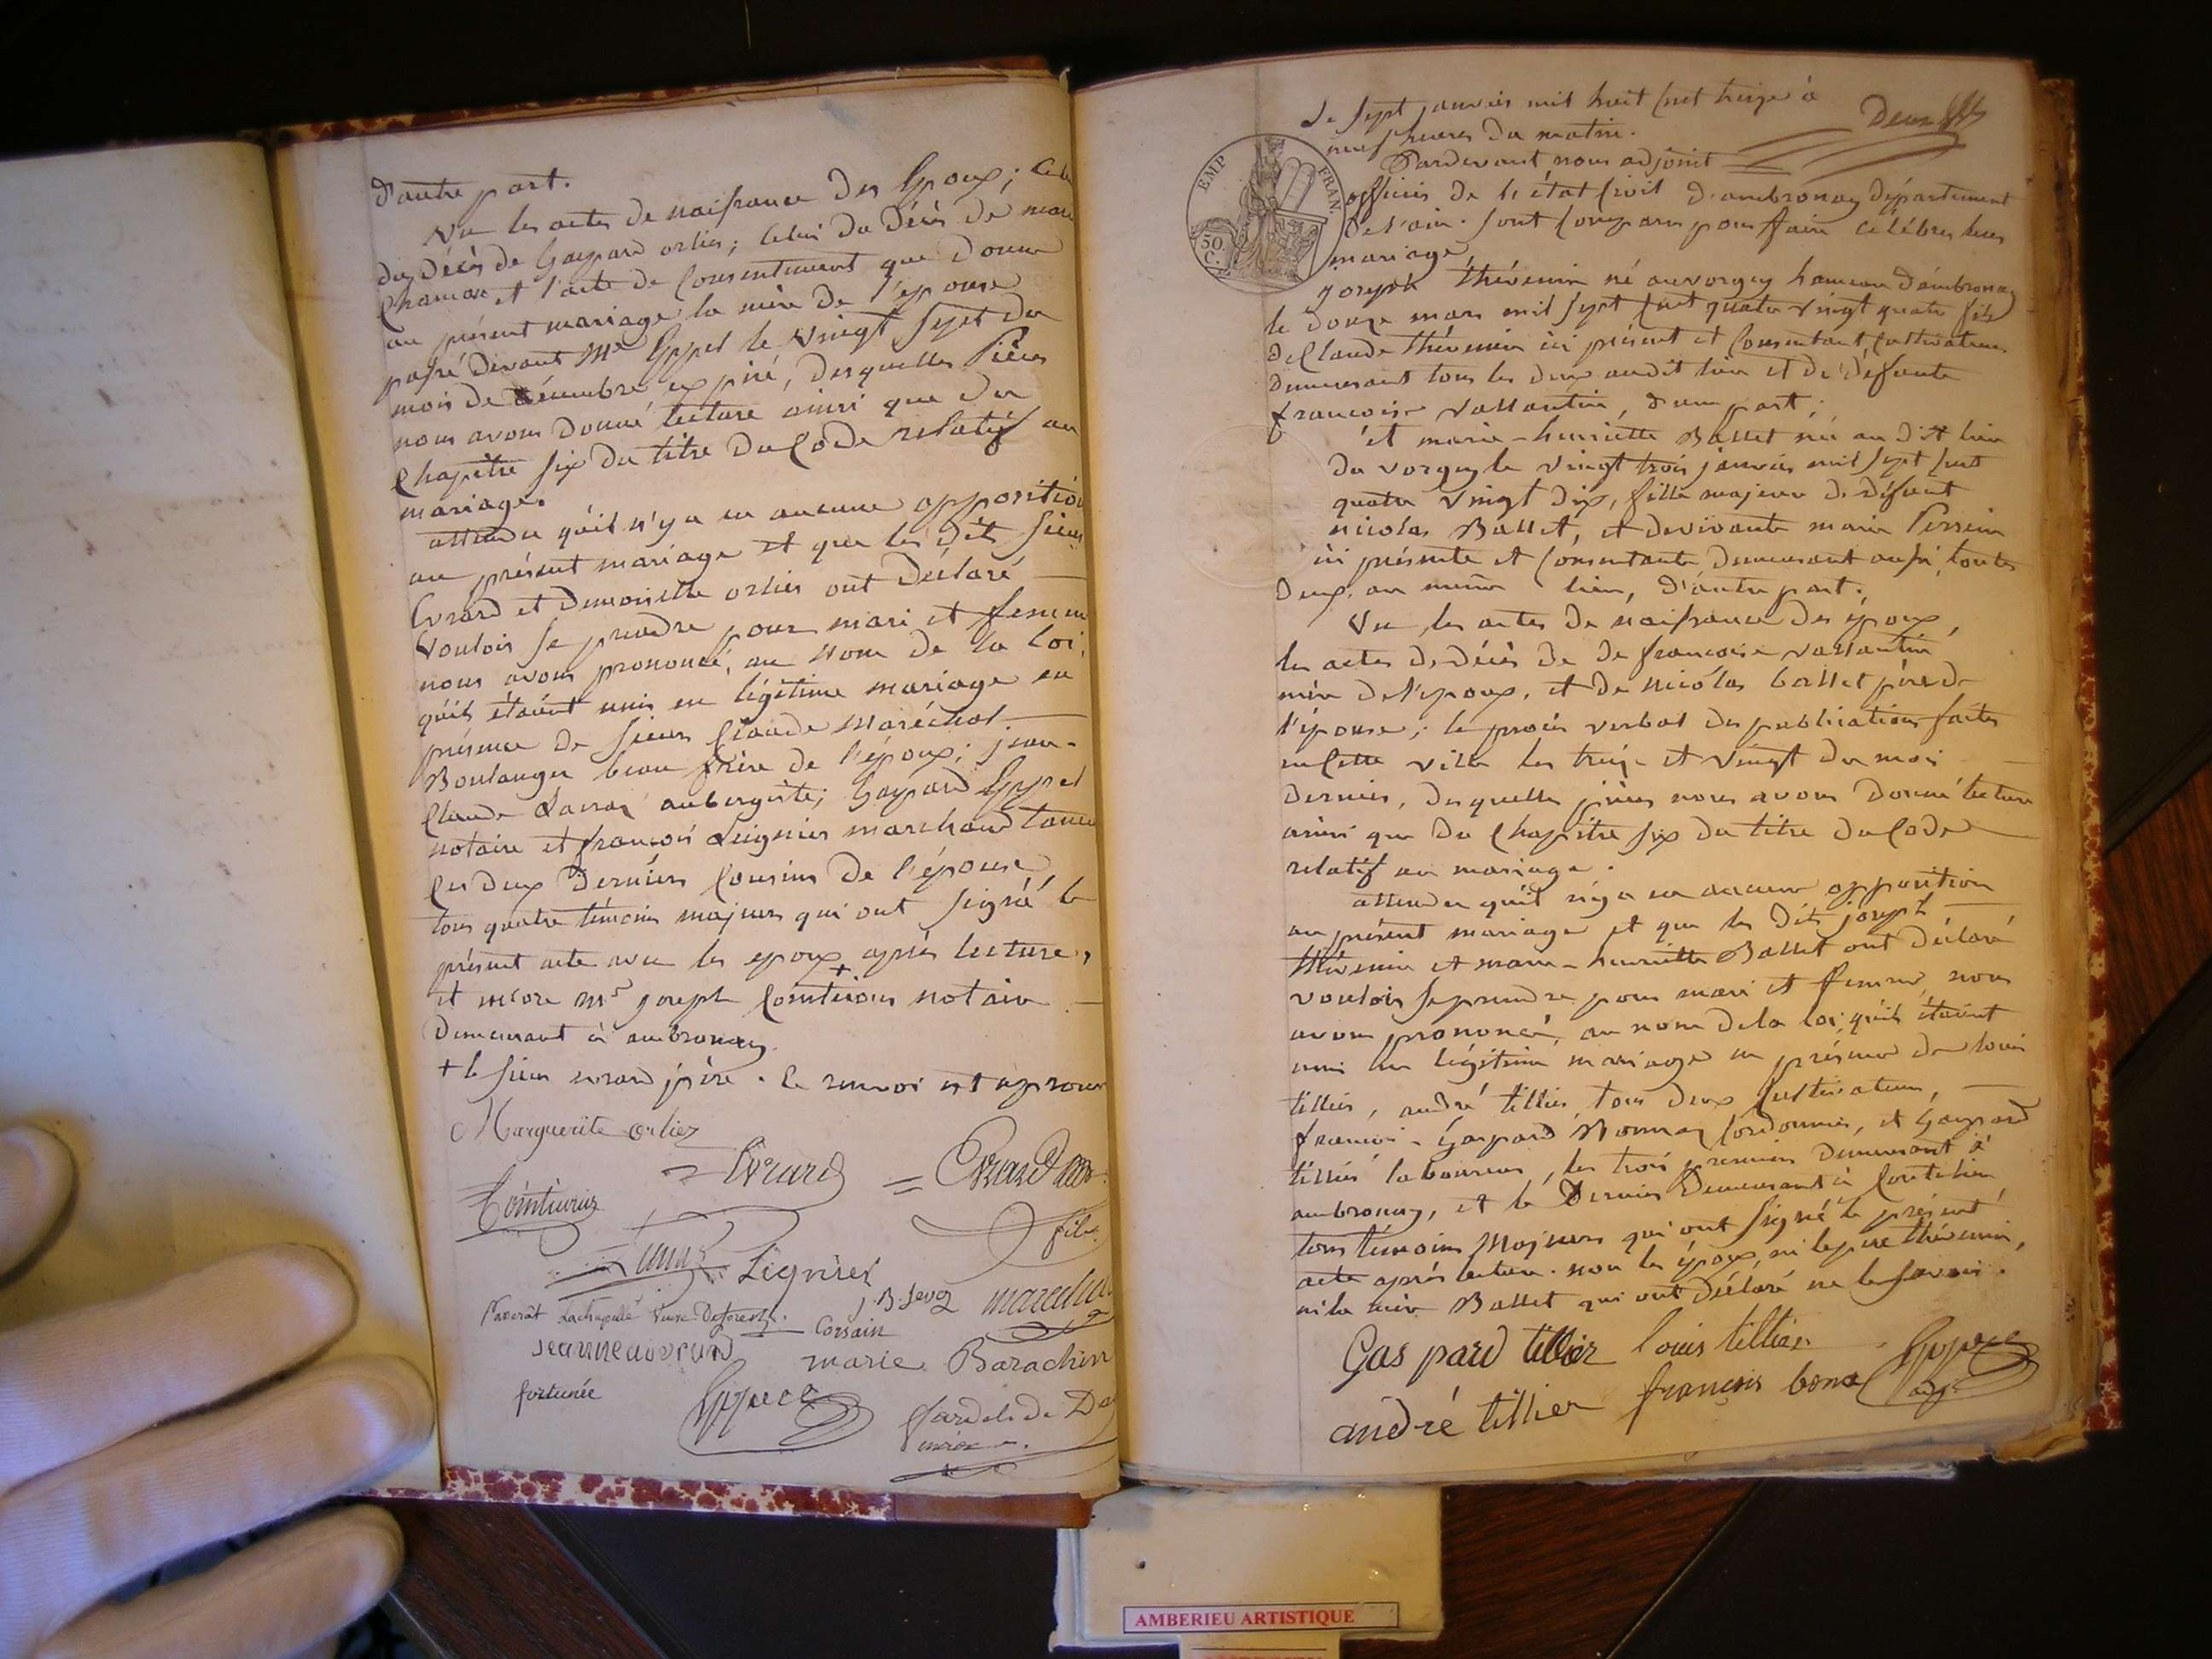 d'autre part.
Vu les actes de naissance des Epoux; celui
du Décès de Gaspard orlier; celui du Décès de marie
et l'acte de Consentement que donne
au présent mariage la mère de l'epouse
passé devant Me Eyppel le vingt sept du
mois de décembre expiré, desquelles Pièces
nous avons donné lecture ainsi que du
Chapitre six du titre du Code relatif au
mariage.
attendu qu'il n'y a eu aucune opposition
au présent mariage et que les dits sieur
Evrard et demoiselle orlier ont déclaré
vouloir se prendre pour mari et femme
nous avons prononcé, au nom de la loi,
qu'ils étaient unis en légitime mariage en
présence de sieurs Claude Maréchal
Boulanger beau frère de l'époux; jean-
Claude aubergiste; Gaspard Eyppel
notaire et françois Leignier marchand
les deux derniers Cousins de l'épouse
tous quatre témoins majeurs qui ont signé le
présent acte avec les epoux + après lecture,
et encore mr joseph Cointurier notaire
demeurant à ambronay.
+ le sieur evrard père. le renvoi est approuvé
Marguerite orlier
Evrard
Evrard
fils
Lignier
J.B. Sevoz
marechal
Lachapelle
Corsain
marie Barachin
fortunée
EMP FRAN.
50.
C.
Le sept janvier mil huit cent treize à
neuf heures du matin.
Pardevant nous adjoint
officier de l'état civil d'ambronay département
de l'ain. sont comparus pour faire célébrer leur
mariage
joseph thévenin né au vorgey hameau d'ambronay
le douze mars mil sept cent quatre vingt quatre fils
de Claude thévenin ici présent et Consentant, Cultivateurs
demeurant tous les deux audit lieu et de défunte
francoise vallantin, d'une part;
et marie-henriette Ballet née au dit lieu
du vorgey le vingt trois janvier mil sept cent
quatre vingt dix, fille majeure de défunt
nicolas Ballet, et de vivante marie Perrein
ici présente et Consentante demeurant aussi toutes
deux au même lieu, d'autre part.
Vu les actes de naissance des époux,
les actes de décès de de francoise vallantin
mère de l'epoux, et de nicolas ballet père de
l'épouse; le procès verbal des publications faites
en cette ville les treize et vingt du mois
dernier, desquelles pièces nous avons donné lecture
ainsi que du Chapitre six du titre du Code
relatif au mariage.
attendu qu'il n'y a eu aucune opposition
au présent mariage et que les dits joseph
thévenin et marie-henriette Ballet ont déclaré
vouloir se prendre pour mari et femme, nous
avons prononcé, au nom de la loi, qu'ils étaient
unis en légitime mariage en présence de louis
tillier, andré tillier, tous deux Cultivateurs,
françois-Gaspard Bonnaz Cordonnier, et Gaspard
tillier laboureur, les trois premiers demeurant à
ambronay, et le dernier demeurant à
tous témoins Majeurs qui ont signé le présent
acte après lecture. non les époux, ni le père thévenin,
ni la mère Ballet qui ont déclaré ne le savoir.
Gas pard tillier louis tillier
andré tillier françois bona
adjt
AMBERIEU ARTISTIQUE